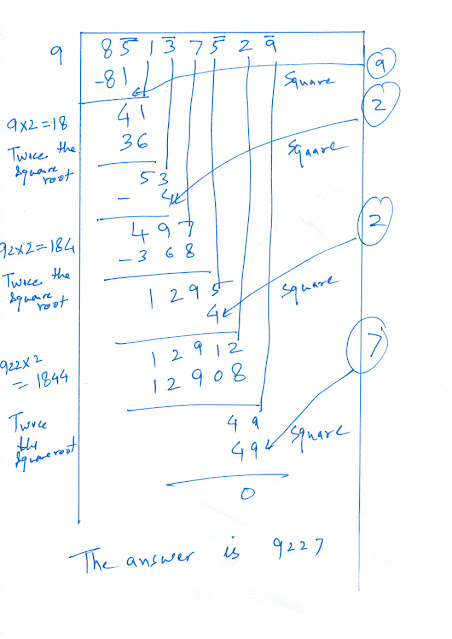 9 8 5̅ 1 3̅ 7 5̅ 2 9̅
-81 Square 9
41
9x2=18
36
2
Twice the
Square
root
53 Square
- 4
497
92x2=184
-368
2
Twice the
Square
root
1295 Square
4
12912
922x2
= 1844
12908
7
Twice
the
Square root
49
49 Square
0
The answer is 9227